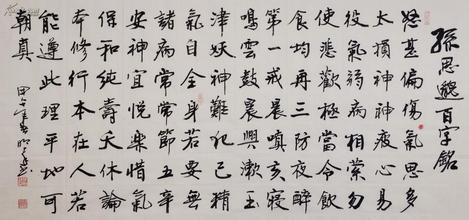 孫思邈百字銘
怒甚偏傷氣思多
太損神神疲心易
役氣弱病相縈勿
使悲歡極當令飲
食均再三防夜醉
第一戒晨嗔亥寢
鳴雲鼓晨興漱玉
津妖神難犯己精
氣自全身若要無
諸病常常節五辛
安神宜悅樂惜氣
保和純壽夭休論
本修行本在人若
能遵此理平地可
朝真
甲午年